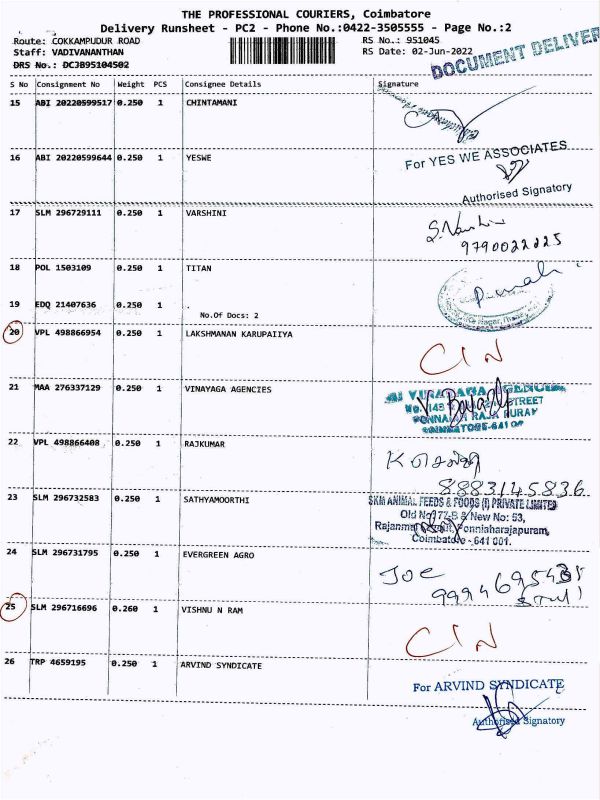 THE PROFESSIONAL COURIERS, Coimbatore
Delivery Runsheet - PC2 - Phone No.:0422-3505555 - Page No.:2
Route: COKKAMPUDUR ROAD RS No.: 951045
Staff: VADIVANANTHAN RS Date: 02-Jun-2022
DRS No.: DCJB95104502
DOCUMENT DELIVER
S No Consignment No Weight PCS Consignee Details Signature
15 ABI 20220599517 0.250 1 CHINTAMANI
16 ABI 20220599644 0.250 1 YESWE
For YES WE ASSOCIATES
Authorised Signatory
17 SLM 296729111 0.250 1 VARSHINI
9790022225
18 POL 1503109 0.250 1 TITAN
19 EDQ 21407636 0.250 1
No.Of Docs: 2
20 VPL 498866954 0.250 1 LAKSHMANAN KARUPAIIYA
C/N
21 MAA 276337129 0.250 1 VINAYAGA AGENCIES
STREET
COIMBATORE-641 01
22 VPL 498866408 0.250 1 RAJKUMAR
8883145836
23 SLM 296732583 0.250 1 SATHYAMOORTHI
SKM ANIMAL FEEDS & FOODS (I) PRIVATE LIMITED
Old No: 77-B & New No: 53,
Ponniaharajapuram,
Coimbatore - 641 001.
24 SLM 296731795 0.250 1 EVERGREEN AGRO
Joe
25 SLM 296716696 0.260 1 VISHNU N RAM
C/N
26 TRP 4659195 0.250 1 ARVIND SYNDICATE
For ARVIND SYNDICATE
Authorised Signatory